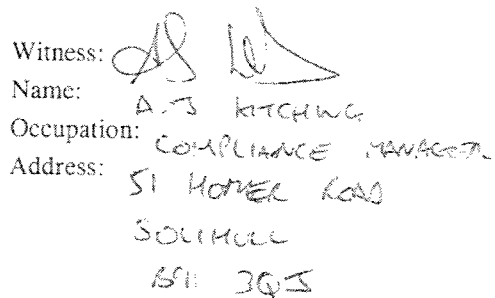 Witness:
Name: A.J KITCHING
Occupation: COMPLIANCE MANAGER
Address: 51 HOMER ROAD
SOLIHULL
B91 3QJ